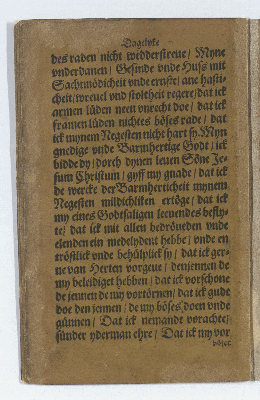 Dagelyke
des raden nicht wedderstreue / Myne
vnderdanen / Gesinde vnde Huß mit
Sachtmödicheit vnde ernste / ane hasti-
cheit / wreuel vnd stoltheit regere / dat ick
armen lüden neen vnrecht doe / dat ick
framen lüden nichtes böses rade / dat
ick mynem Negesten nicht hart sy. Myn
gnedige vnde Barmhertige Godt / ick
bidde dy / dorch dynen leuen Söne Je-
sum Christum / gyff my gnade / dat ick
de wercke der Barmherticheit mynem
Negesten mildichliken ertöge / dat ick
my eines Godtsaligen leeuendes beflyte-
te / dat ick mit allen bedröueden vnde
elenden ein medelydent hebbe / vnde en
tröstlick vnde behülplick sy / dat ick ger-
ne van Herten vorgeue / den jennen de
my beleidiget hebben / dat ick vorschone
de jennen de my vortörnen / dat ick gudt
doe den jennen / de my böses doen vnde
günnen / Dat ick nemandt vorachte /
sünder yderman ehre / Dat ick my vor
böser